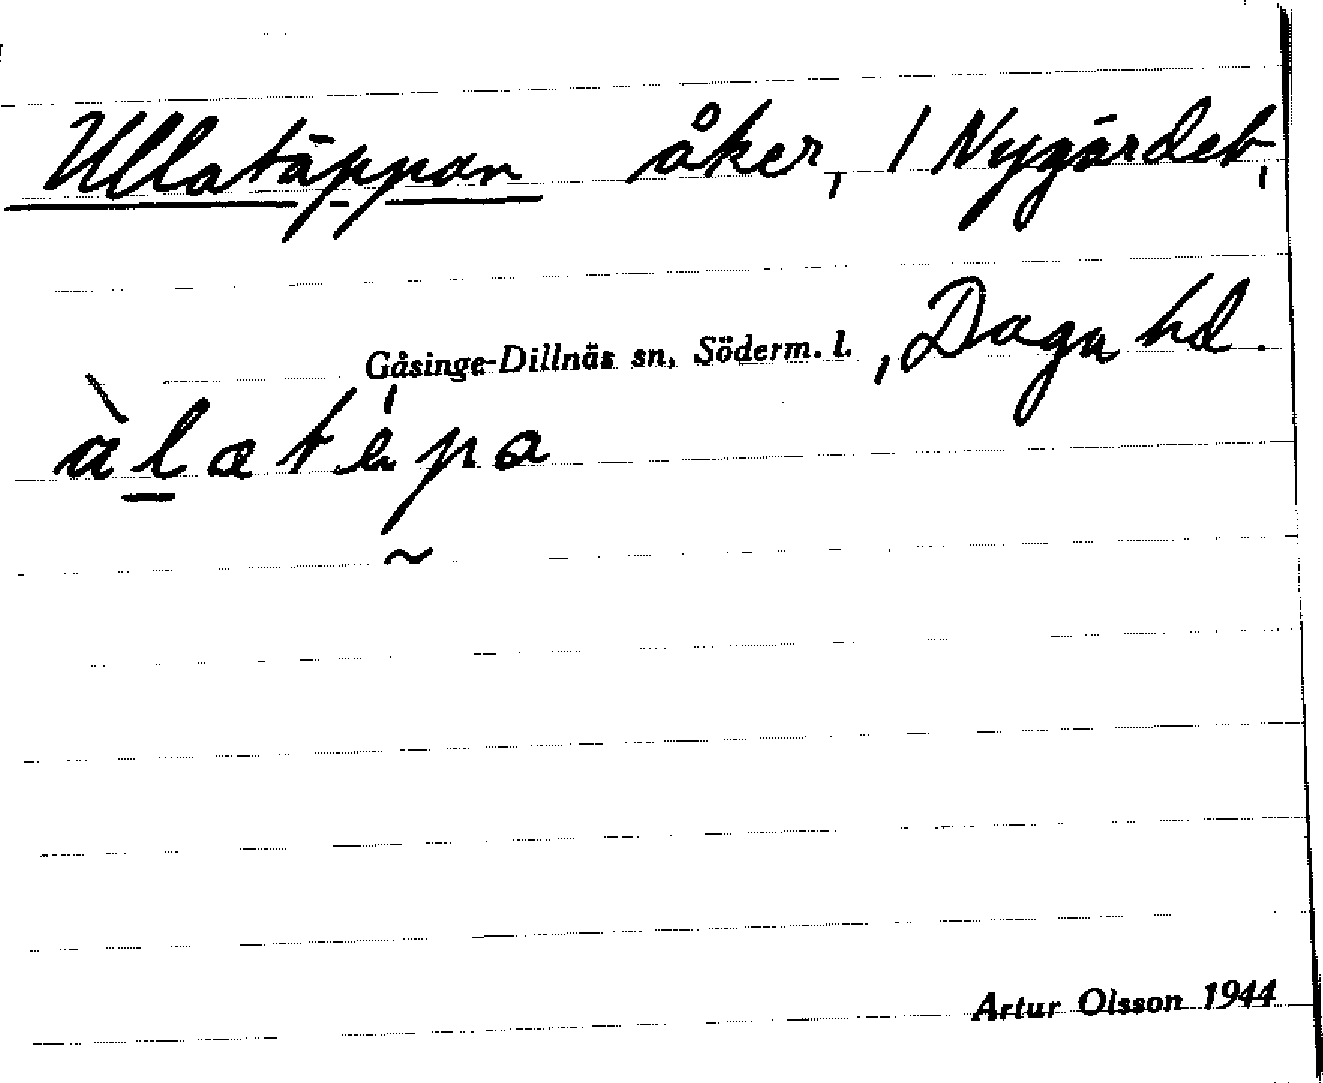 Ullatäppan åker, 1 Nygårdeb,
Gåsinge-Dillnäs sn, Söderm. l., Daga hd.
Artur Olsson 1944